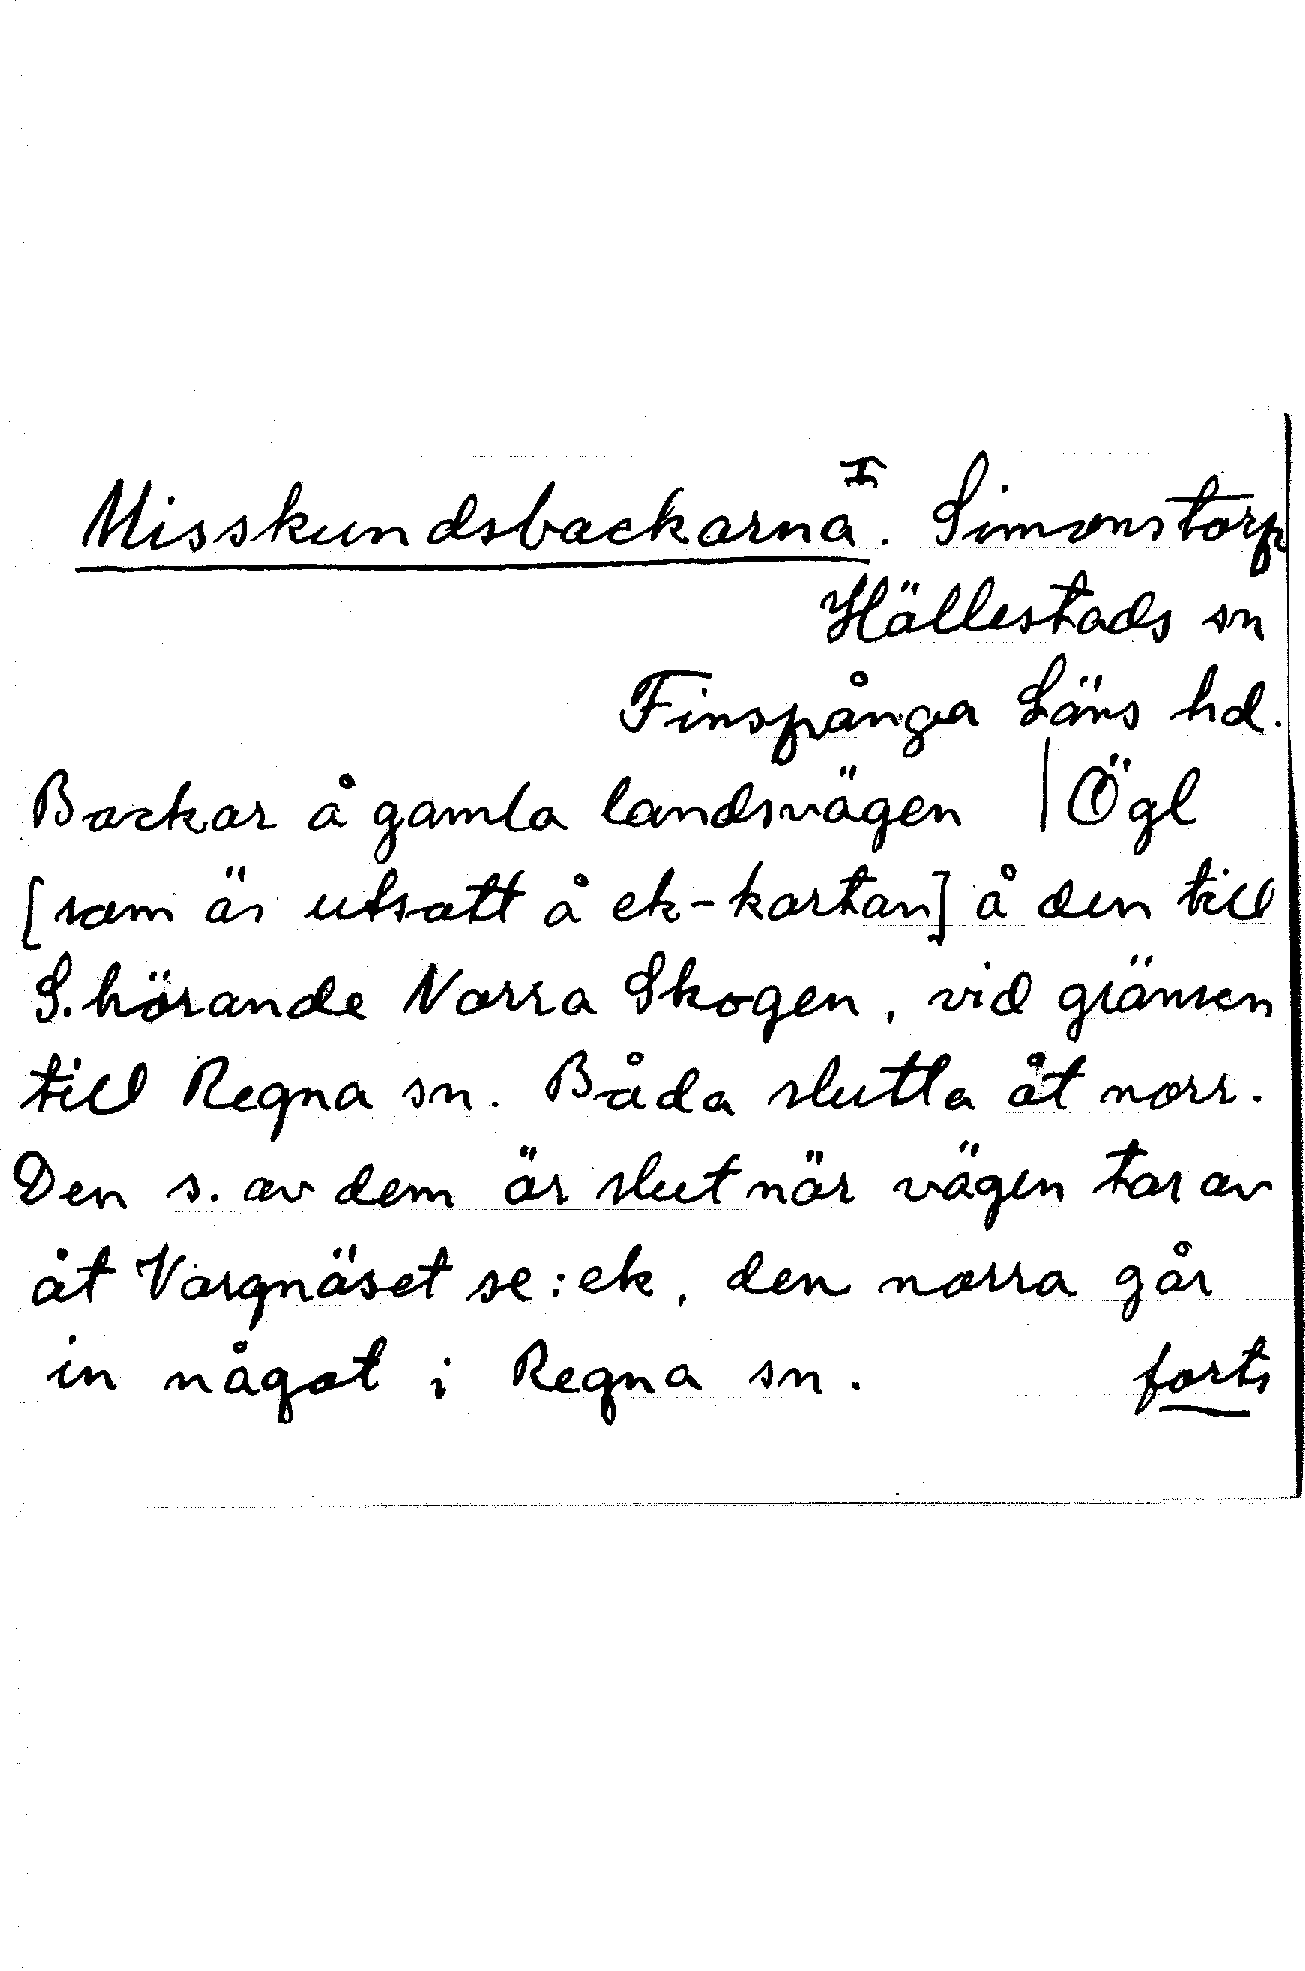 Misskundsbackarna I. Simonstorp
Hällestads sn
Finspånga Läns hd.
Backar å gamla landsvägen | Ögl
[som är utsatt å ek-kartan] å den till
S. hörande Norra Skogen, vid gränsen
till Regna sn. Båda slutta åt norr.
Den s. av dem är slut när vägen tar av
åt Vargnäset se: ek, den norra går
in något i Regna sn. forts